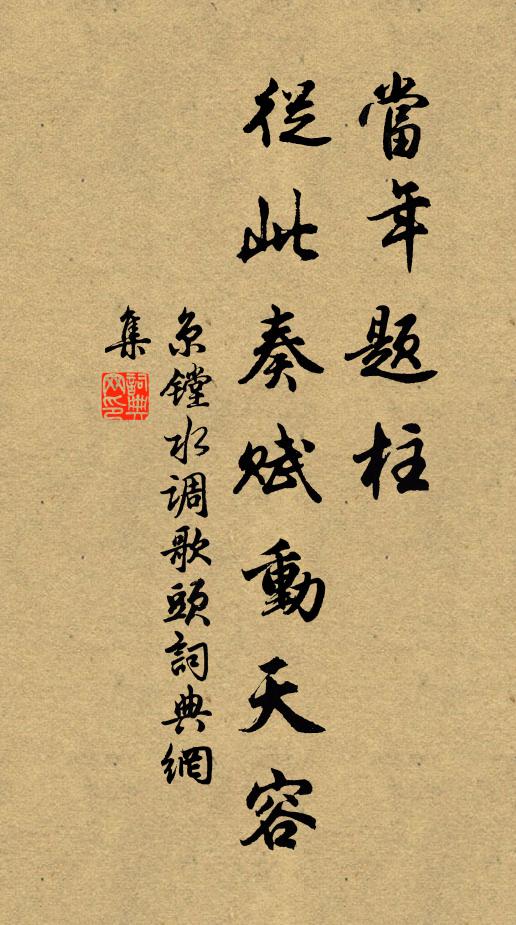 當年題柱
從此奏賦動天容
京鏜水调歌頭詞典網
集
詞典網印